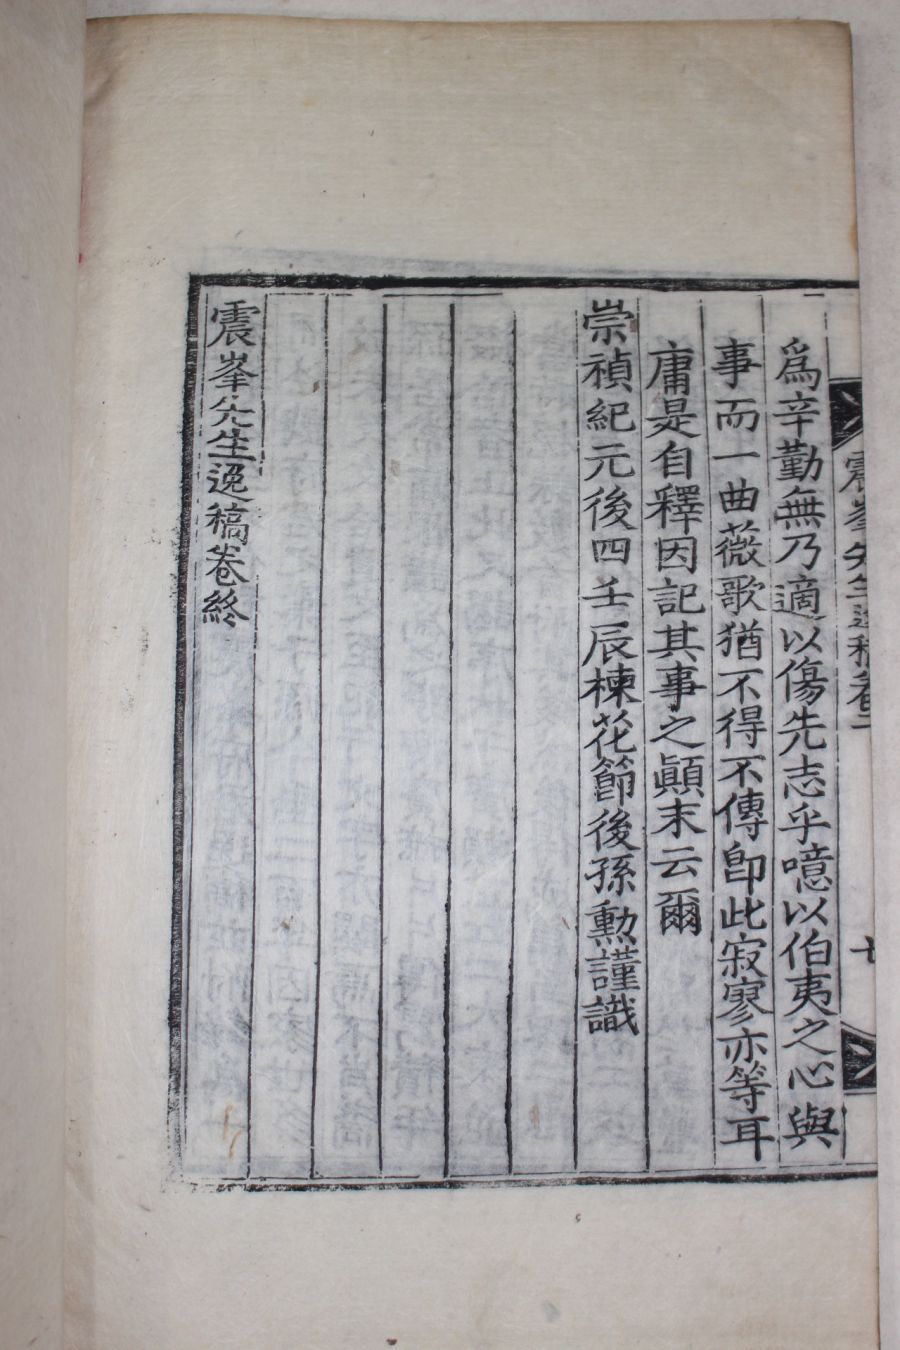 震峯先生逸稿卷二
七
爲辛勤無乃適以傷先志乎噫以伯夷之心與
事而一曲薇歌猶不得不傳卽此寂寥亦等耳
庸是自釋因記其事之顚末云爾
崇禎紀元後四壬辰楝花節後孫勲謹識
震峯先生逸稿卷終